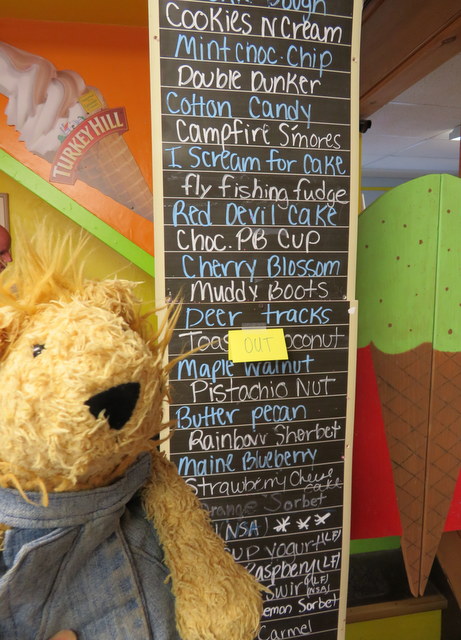 Dough
Cookies N Cream
Mint choc. Chip
Double Dunker
Cotton Candy
Campfire S'mores
I Scream for Cake
fly fishing fudge
Red Devil Cake
Choc. PB Cup
Cherry Blossom
Muddy Boots
Deer tracks
OUT
Maple Walnut
Pistachio Nut
Butter pecan
Rainbow Sherbet
Maine Blueberry
Strawberry Cheese cake
Orange Sorbet
(NSA) ***
yogurt (LF)
Raspberry (LF)
Swirl (LF) (NSA)
Lemon Sorbet
Carmel
TURKEY HILL